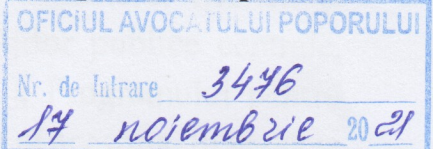 OFICIUL AVOCATULUI POPORULUI
Nr. de Intrare 3476
17 noiembrie 2021